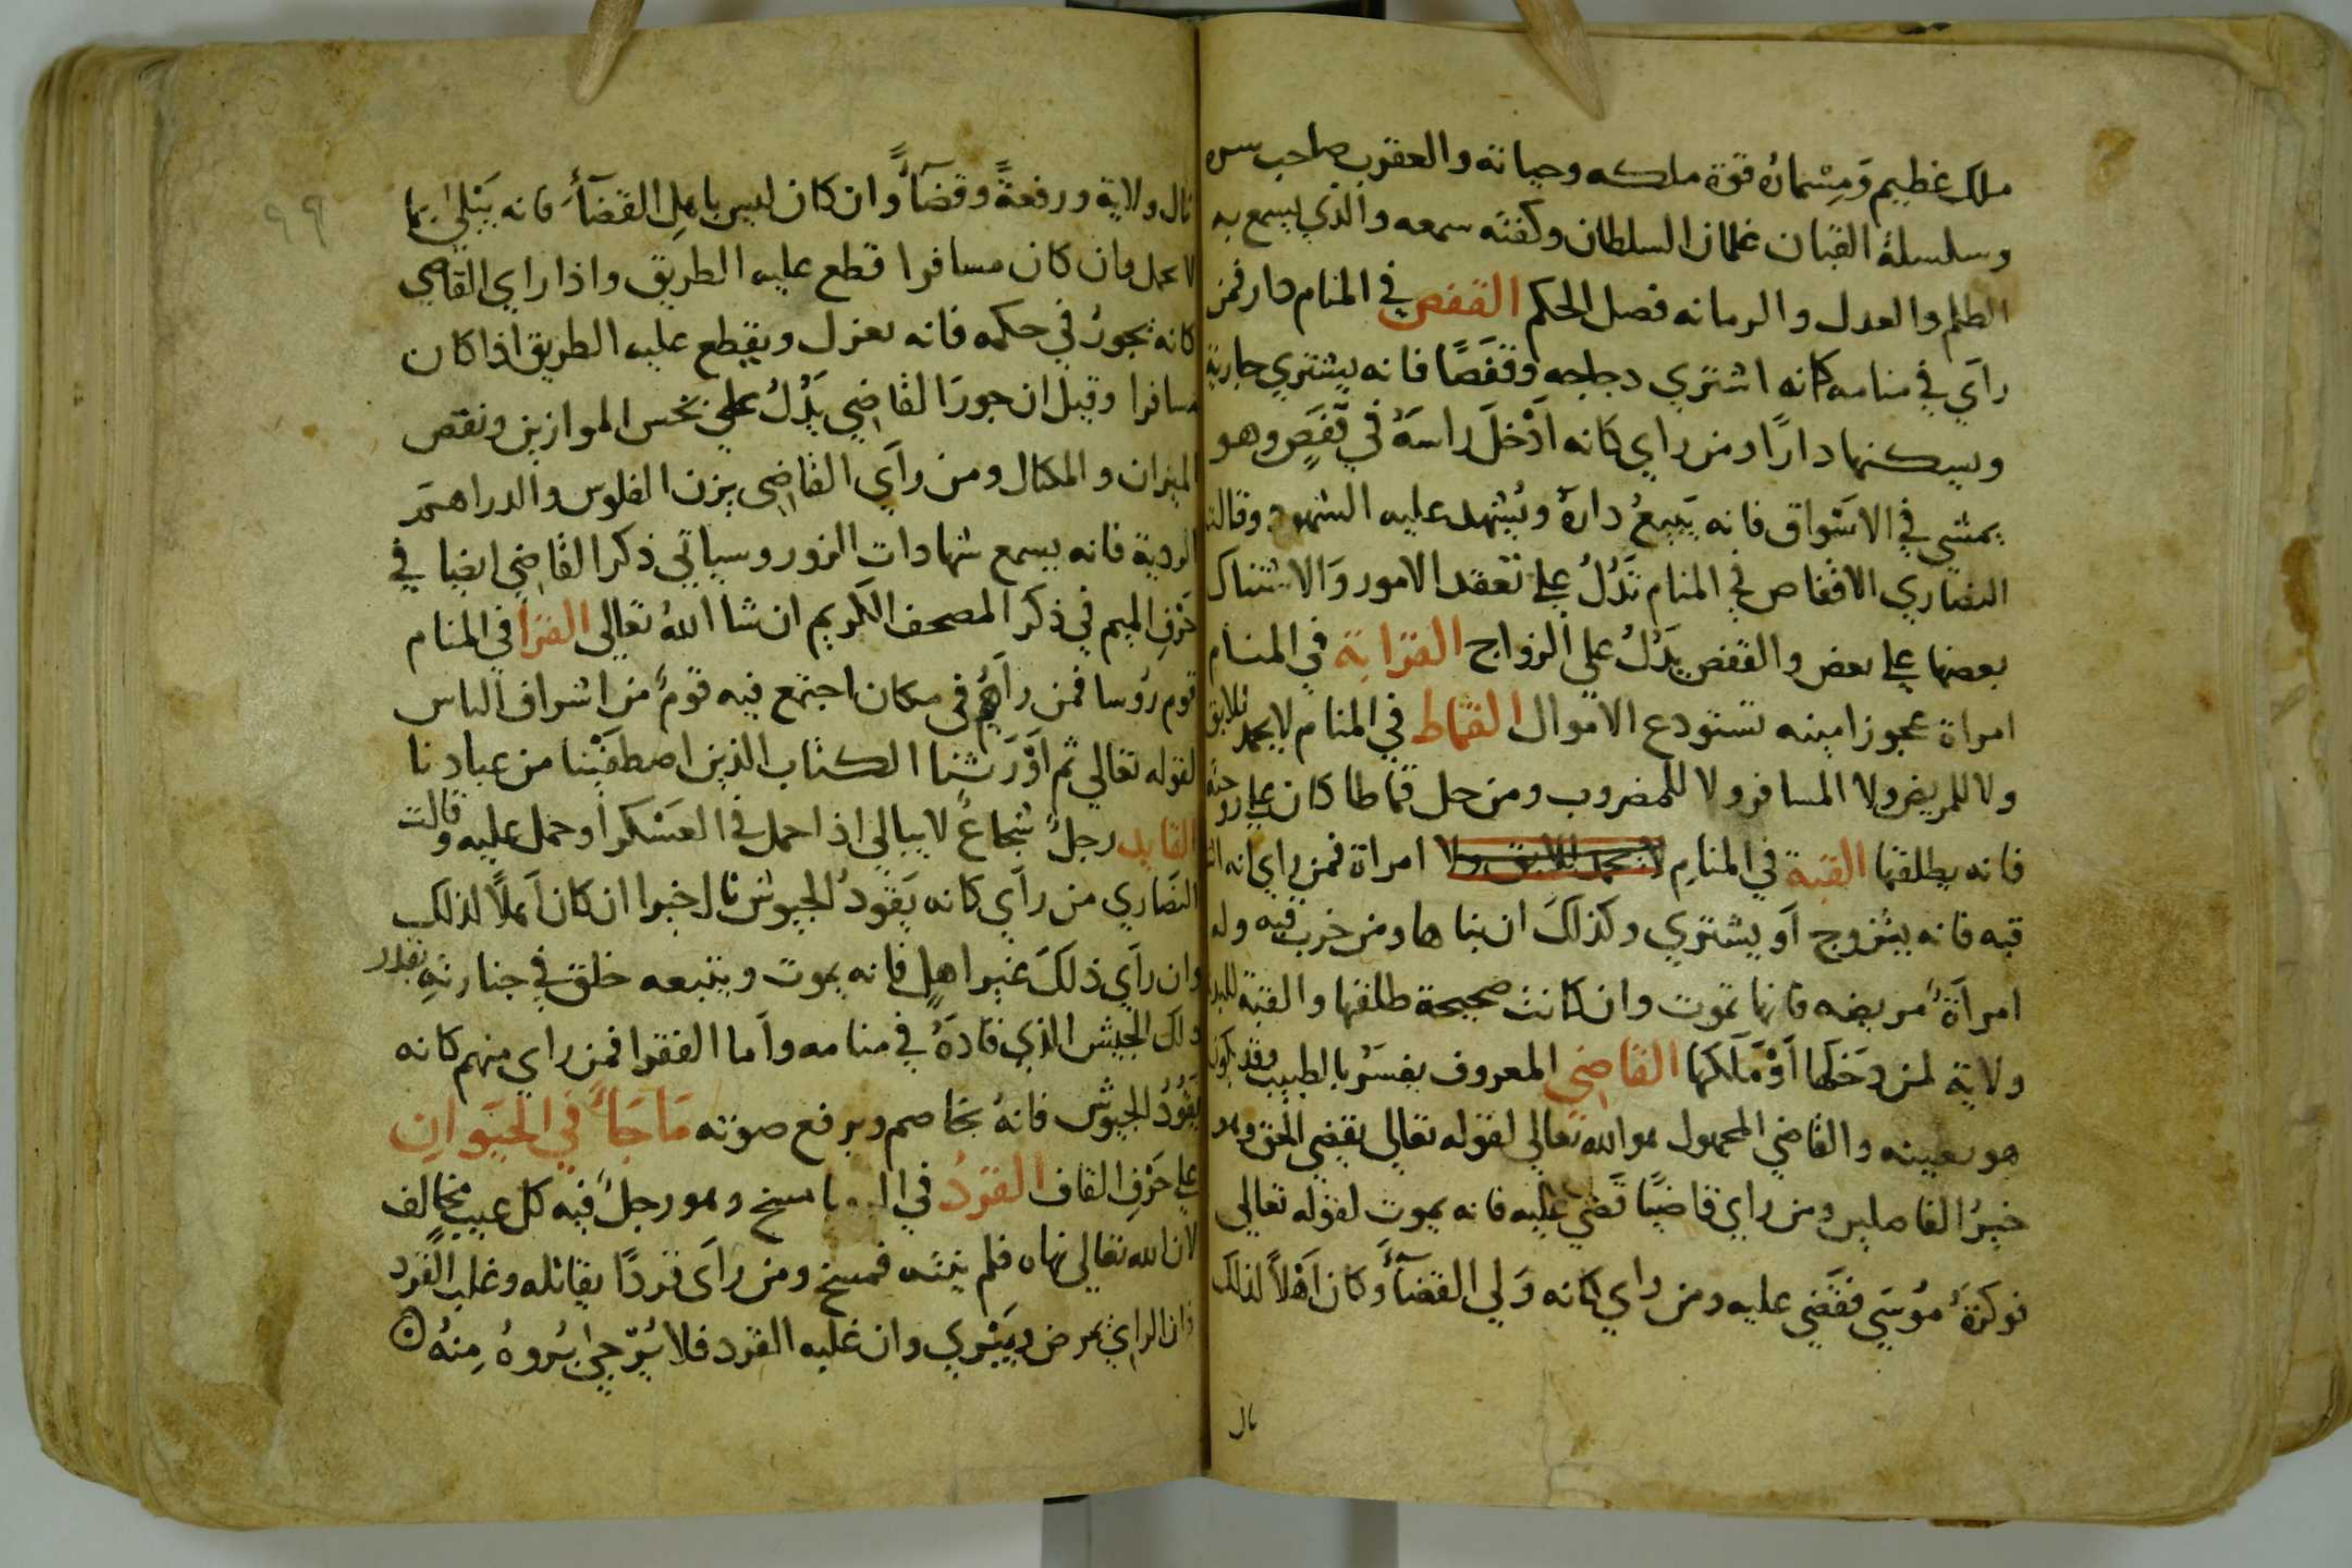 ملك عظيم وَمِسْمارُه قوة ملكه وحياته والعقرب صاحب سره
وسلسلة القبان غلمان السلطان وكفته سمعه والذي يسمع به
الظلم والعدل والرمانه فصل الحكم القفص في المنام دار فمن
رآي في منامه كانه اشتري دجاجه وقفَصًا فانه يشتري جارية
ويسكنها دارًا ومن راي كانه اَدْخلَ راسَهُ في قفَصٍ وهو
يمشي في الاسْواق فانه يَبيعُ دارهُ ويُشهد عليه الشهود وقالت
النصاري الاقفاص في المنام تَدُلُ علي تعقد الامور وَالاشتباك
بعضها علي بعض والقفص يَدُلُ علي الزواج القرابة في المنام
امراة عجوز امينه تستودع الاموال القماط في المنام لا يحمد للابق
ولا للمريض ولا المسافر ولا للمضروب ومن حل قماطا كان علي زوجته
فانه يطلقها القبة في المنام لا تحمد للابق ولا امراة فمن راي انه
قبه فانه يتزوج اَو يشتري وكذلكَ ان بناها ومن خرب قبه وله
امرآةٌ مريضه فانها تموت وان كانت صحيحة طلقها والقبة للبدو
ولاية لمن دَخَلَها اَوْ مَلَكَها القاضي المعروف يفسَرُ بالطبيب وقد يكون
هو بعينه والقاضي المجهول هو الله تعالي لقوله تعالي يقضي الحق وهو
خيرُ الفاصلين ومن راي قاضيًا قَضي عليه فانه يموت لقوله تعالي
فوكزَهُ مُوسَي فقَضي عليه ومن راي كانه وَلي القضآءَ وكان اَهْلاً لذلك
نال
٩٩
نال ولاية ورفعةً وقضآءً وان كان ليس باهلِ القضآءِ فانه يَبتلي بما
لا يحمل وان كان مسافرا قطع عليه الطريق واذا راي القاضي
كانه يجورُ في حكمه فانه يعزل ويقطع عليه الطريق اذا كان
مسافرا وقيل ان جورَ القاضي يَدُلُ علي بخس الموازين ونقص
الميزان والمكال ومن رآي القاضي يزن الفلوس والدراهم
الردية فانه يسمع شهادات الزور وسياتي ذكر القاضي ايضا في
حَرْفِ الميم في ذكر المصحف الكريم ان شا اللهُ تعالي القرا في المنام
قوم رُوسا فمن رآهُم في مكان اجتمع فيه قومٌ من اشراف الناس
لقوله تعالي ثم اَوْرَثنا الكتاب الذين اصطفَيْنا من عبادنا
القايد رجلٌ شجاعٌ لا يبالي اذا حمل في العسْكر اَو حمل عليه وقالت
النصاري من رآي كانه يَقودُ الجيوش نال خيرا ان كان اَهلاً لذلك
وان رآي ذلكَ غير اهلٍ فانه يموت ويتبعه خلق في جنازتهِ بقدر
ذلك الجيش الذي قادَهُ في منامه واَما الفقرا فمن راي منهم كانه
يَقُوْدُ الجيوش فانهُ يخاصم ويرفع صوته مَاجَآءَ في الحَيَوانِ
علي حَرْفِ القاف القرْدُ في ماسخ وهو رجلٌ فيه كل عيب مخالف
لان الله تعالي نهاه فلم ينته فمسخ ومن رآى قردًا يقاتله وغلب القرد
فان الراي يمرض ويَبْري وان غلبه القرد فلا يُرْجي بُروهُ مِنهُ